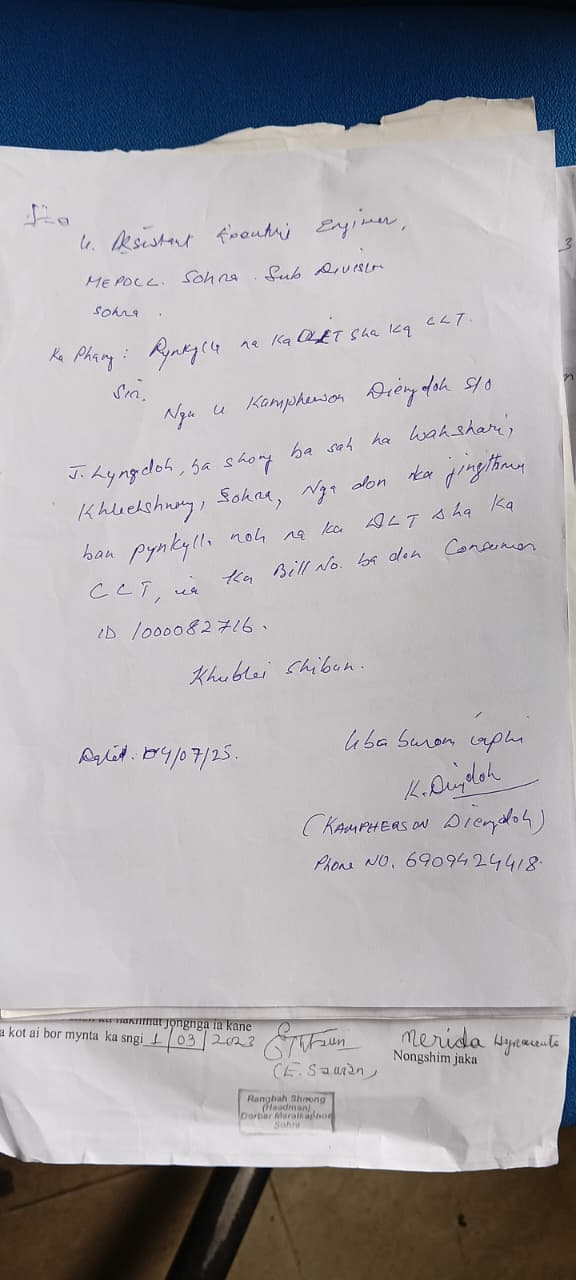 To
U. Assistant Executive Engineer,
MEPDCL. Sohra. Sub Division
Sohra.
Ka Phang: Pynkylla na Ka DLT sha Ka CLT.
Sir,
Nga u Kampherson Diengdoh S/O
J. Lyngdoh, ba shong ba sah ha Wahshari,
Khliehshnong, Sohra, Nga don ka jingthmu
ban pynkylla noh na ka DLT sha Ka
CLT, ia Ka Bill No. ba don Consumer
ID 1000082716.
Khublei Shiban.
Dated. 04/07/25.
Uba burom iaphi
K. Diengdoh
(KAMPHERSON Diengdoh)
Phone NO. 6909424418.
jongnga ia kane
a kot ai bor mynta ka sngi 1/03/2023
Nerida
Nongshim jaka
Rangbah Shnong
(Headman)
Dorbar Maraikaphon
Sohra